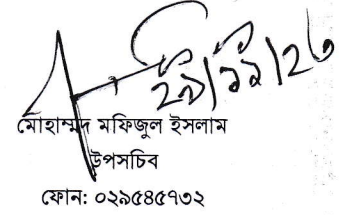 ২৯/১১/২৩
মোহাম্মদ মফিজুল ইসলাম
উপসচিব
ফোন: ০২৯৫৪৫৭৩২